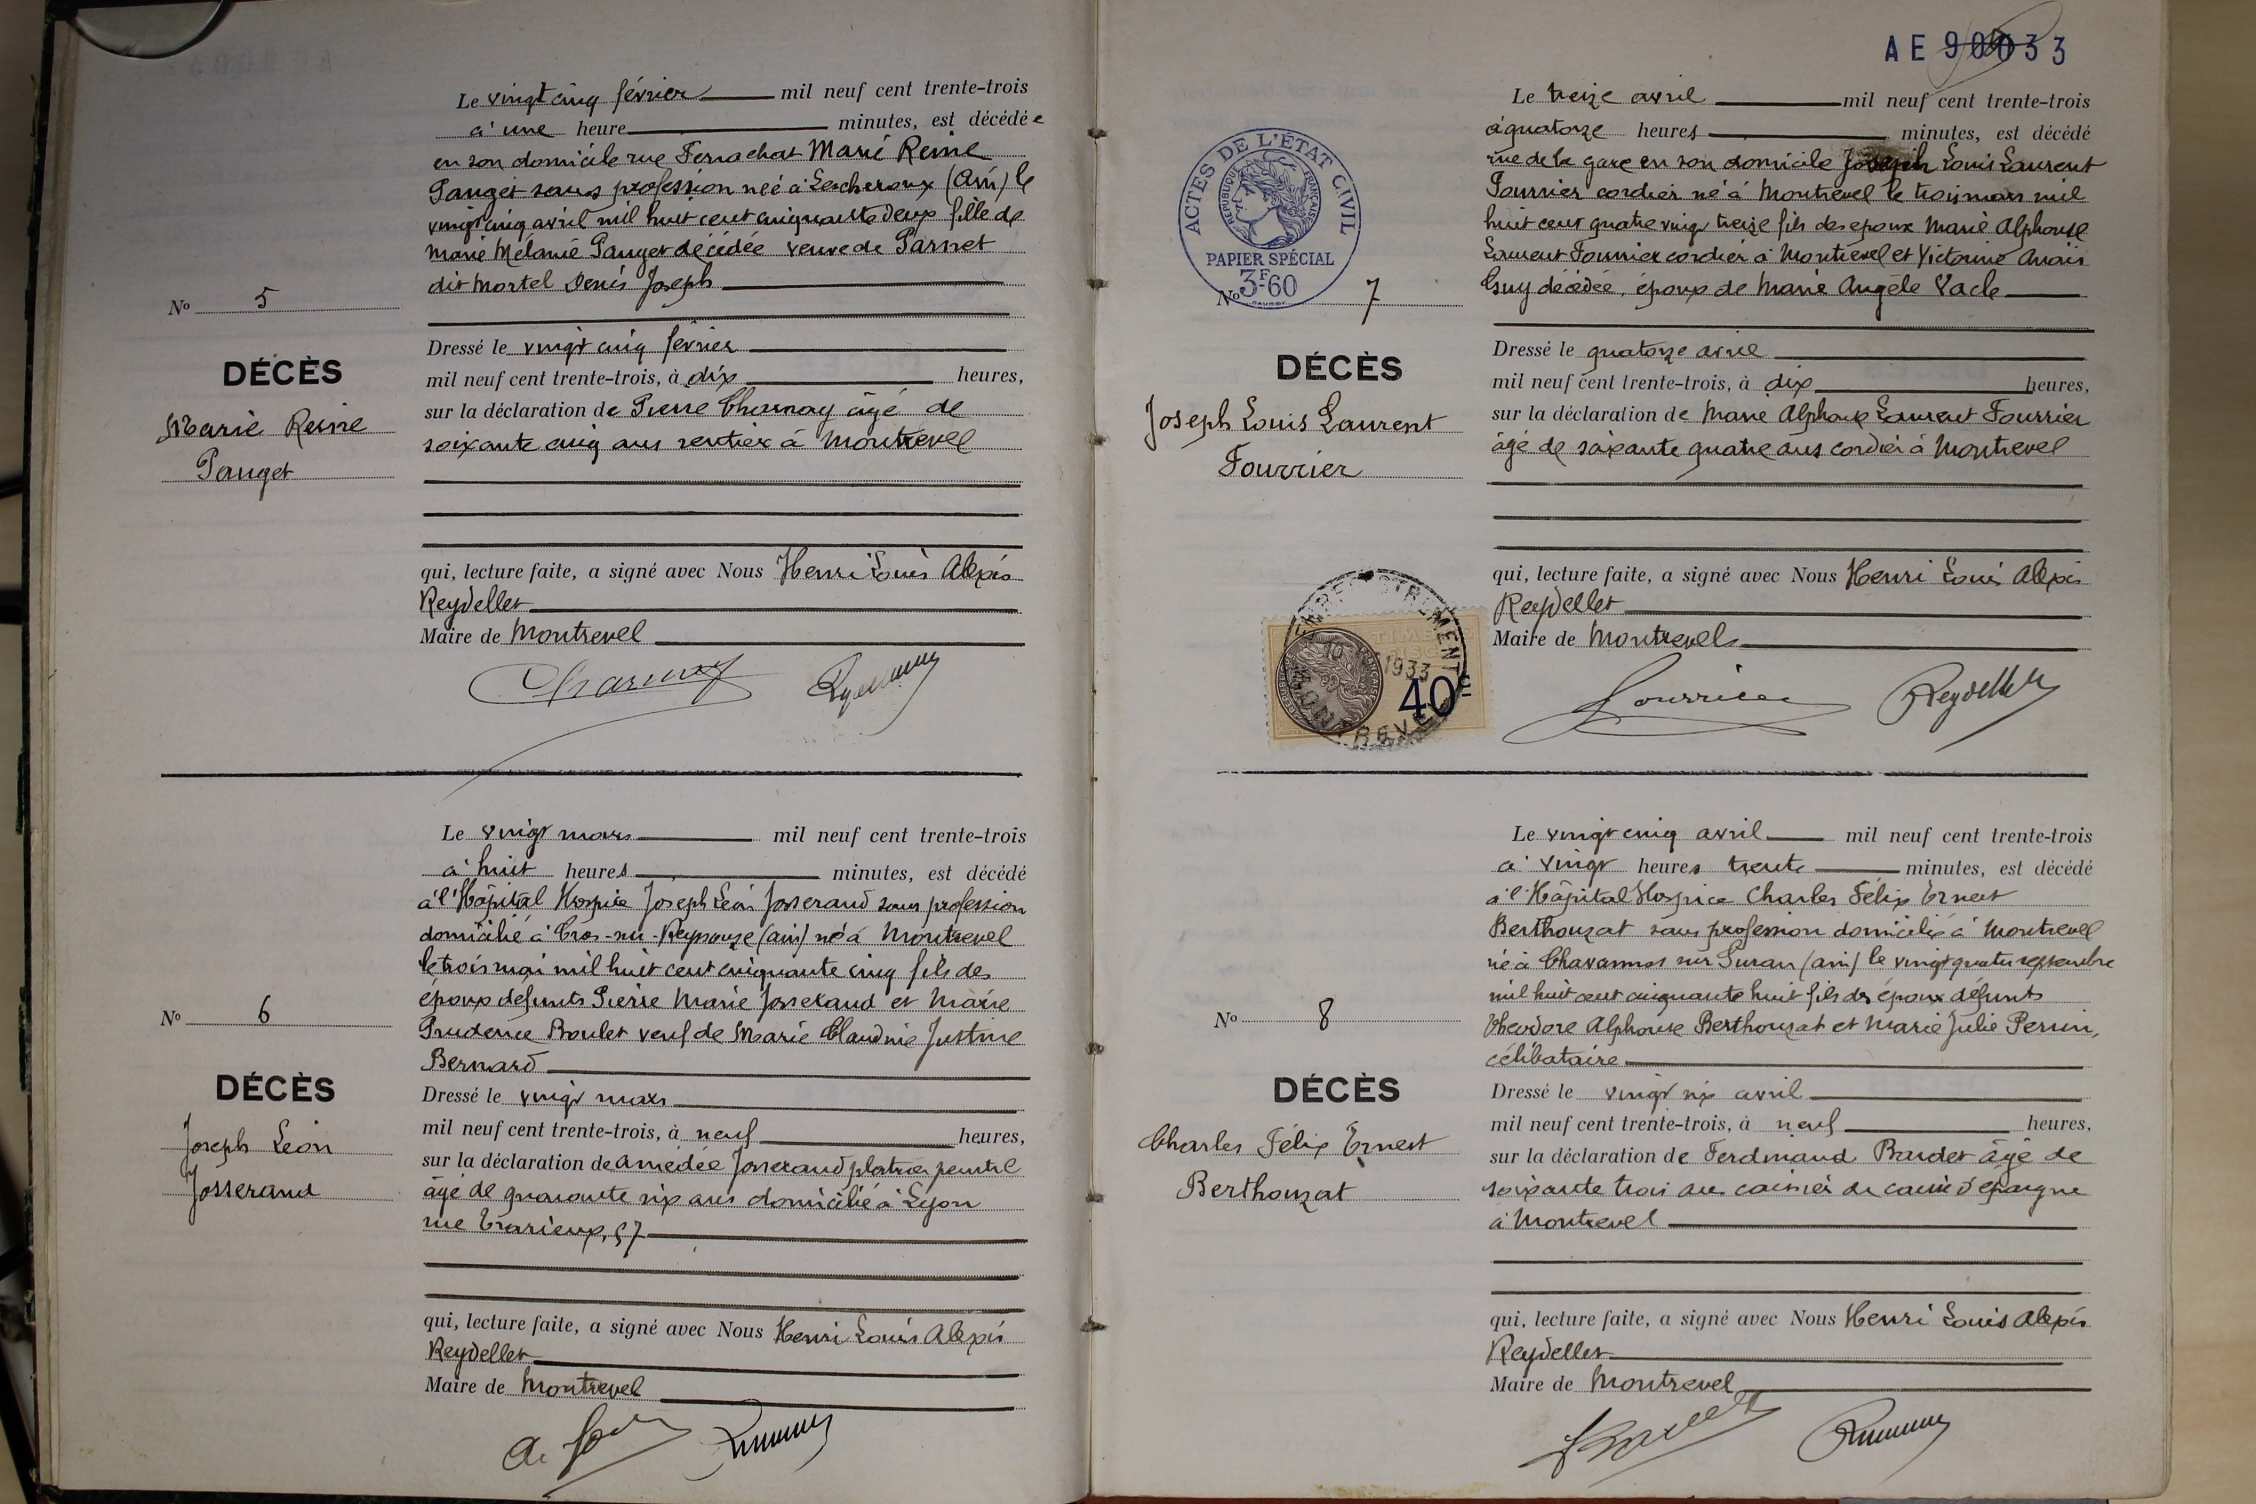 Le vingt cinq février mil neuf cent trente-trois
à une heure minutes, est décédée
en son domicile rue Ferrachat Marie Reine
Pauget sans profession née à Lescheroux (Ain) le
vingt cinq avril mil huit cent cinquante deux fille de
Marie Mélanie Pauget décédée veuve de Parnet
dit Mortel Denis Joseph
No 5
DÉCÈS
Marie Reine
Pauget
Dressé le vingt cinq février
mil neuf cent trente-trois, à dix heures,
sur la déclaration de Pierre Charnay âgé de
soixante cinq ans rentier à Montrevel
qui, lecture faite, a signé avec Nous Henri Louis Alexis
Reydellet
Maire de Montrevel
Charnay
Le vingt mars mil neuf cent trente-trois
à huit heures minutes, est décédé
à l'Hôpital Hospice Joseph Léon Josserand sans profession
domicilié à Cras-sur-Reyssouze (Ain) né à Montrevel
le trois mai mil huit cent cinquante cinq fils des
époux défunts Pierre Marie Josserand et Marie
Prudence Boulet veuf de Marie Claudine Justine
Bernard
No 6
DÉCÈS
Joseph Léon
Josserand
Dressé le vingt mars
mil neuf cent trente-trois, à neuf heures,
sur la déclaration de Amédée Josserand platrier peintre
âgé de quarante six ans domicilié à Lyon
rue Trarieux, 57
qui, lecture faite, a signé avec Nous Henri Louis Alexis
Reydellet
Maire de Montrevel
AE 90033
Le treize avril mil neuf cent trente-trois
à quatorze heures minutes, est décédé
rue de la gare en son domicile Joseph Louis Laurent
Fourrier cordier né à Montrevel le trois mars mil
huit cent quatre vingt treize fils des époux Marie Alphonse
Laurent Fourrier cordier à Montrevel et Victorine Anaïs
Guy décédée, époux de Marie Angèle Vacle
ACTES DE L'ÉTAT CIVIL
RÉPUBLIQUE FRANÇAISE
PAPIER SPÉCIAL
3F60
No 7
DÉCÈS
Joseph Louis Laurent
Fourrier
Dressé le quatorze avril
mil neuf cent trente-trois, à dix heures,
sur la déclaration de Marie Alphonse Laurent Fourrier
âgé de soixante quatre ans cordier à Montrevel
qui, lecture faite, a signé avec Nous Henri Louis Alexis
Reydellet
Maire de Montrevel
ENREGISTREMENT
TIMBRE
1933
40
MONTREVEL
Fourrier Reydellet
Le vingt cinq avril mil neuf cent trente-trois
à vingt heures trente minutes, est décédé
à l'Hôpital Hospice Charles Félix Ernest
Berthouzat sans profession domicilié à Montrevel
né à Chavannes sur Suran (Ain) le vingt quatre septembre
mil huit cent cinquante huit fils des époux défunts
Théodore Alphonse Berthouzat et Marie Julie Perrin,
célibataire
No 8
DÉCÈS
Charles Félix Ernest
Berthouzat
Dressé le vingt six avril
mil neuf cent trente-trois, à neuf heures,
sur la déclaration de Ferdinand Bardet âgé de
soixante trois ans caissier de caisse d'épargne
à Montrevel
qui, lecture faite, a signé avec Nous Henri Louis Alexis
Reydellet
Maire de Montrevel